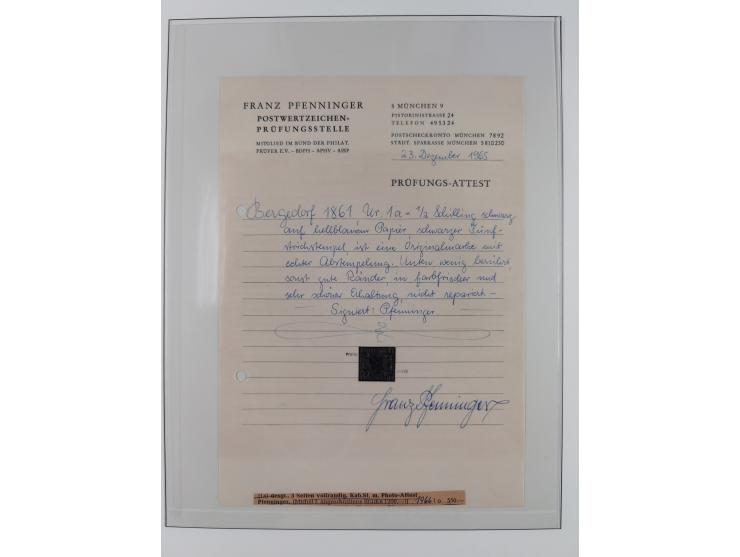 FRANZ PFENNINGER
POSTWERTZEICHEN-
PRÜFUNGSSTELLE
MITGLIED IM BUND DER PHILAT.
PRÜFER E.V. – BDPH – APHV – AIEP
8 MÜNCHEN 9
PISTORINISTRASSE 24
TELEFON 495324
POSTSCHECKKONTO MÜNCHEN 7892
STÄDT. SPARKASSE MÜNCHEN 5810230
23. Dezember 1965
PRÜFUNGS-ATTEST
Bergedorf 1861 Nr. 1a - 1/2 Schilling schwarz
auf hellblauem Papier, schwarzer Fünf-
strichstempel, ist eine Originalmarke mit
echter Abstempelung. Unten wenig berührt,
sonst gute Ränder, in farbfrischer und
sehr schöner Erhaltung, nicht repariert -
Signiert: Pfenninger
Franz Pfenninger
desgl., 3 Seiten vollrandig, Kab.St. m. Photo-Attest
Pfenninger, 1966 550.—